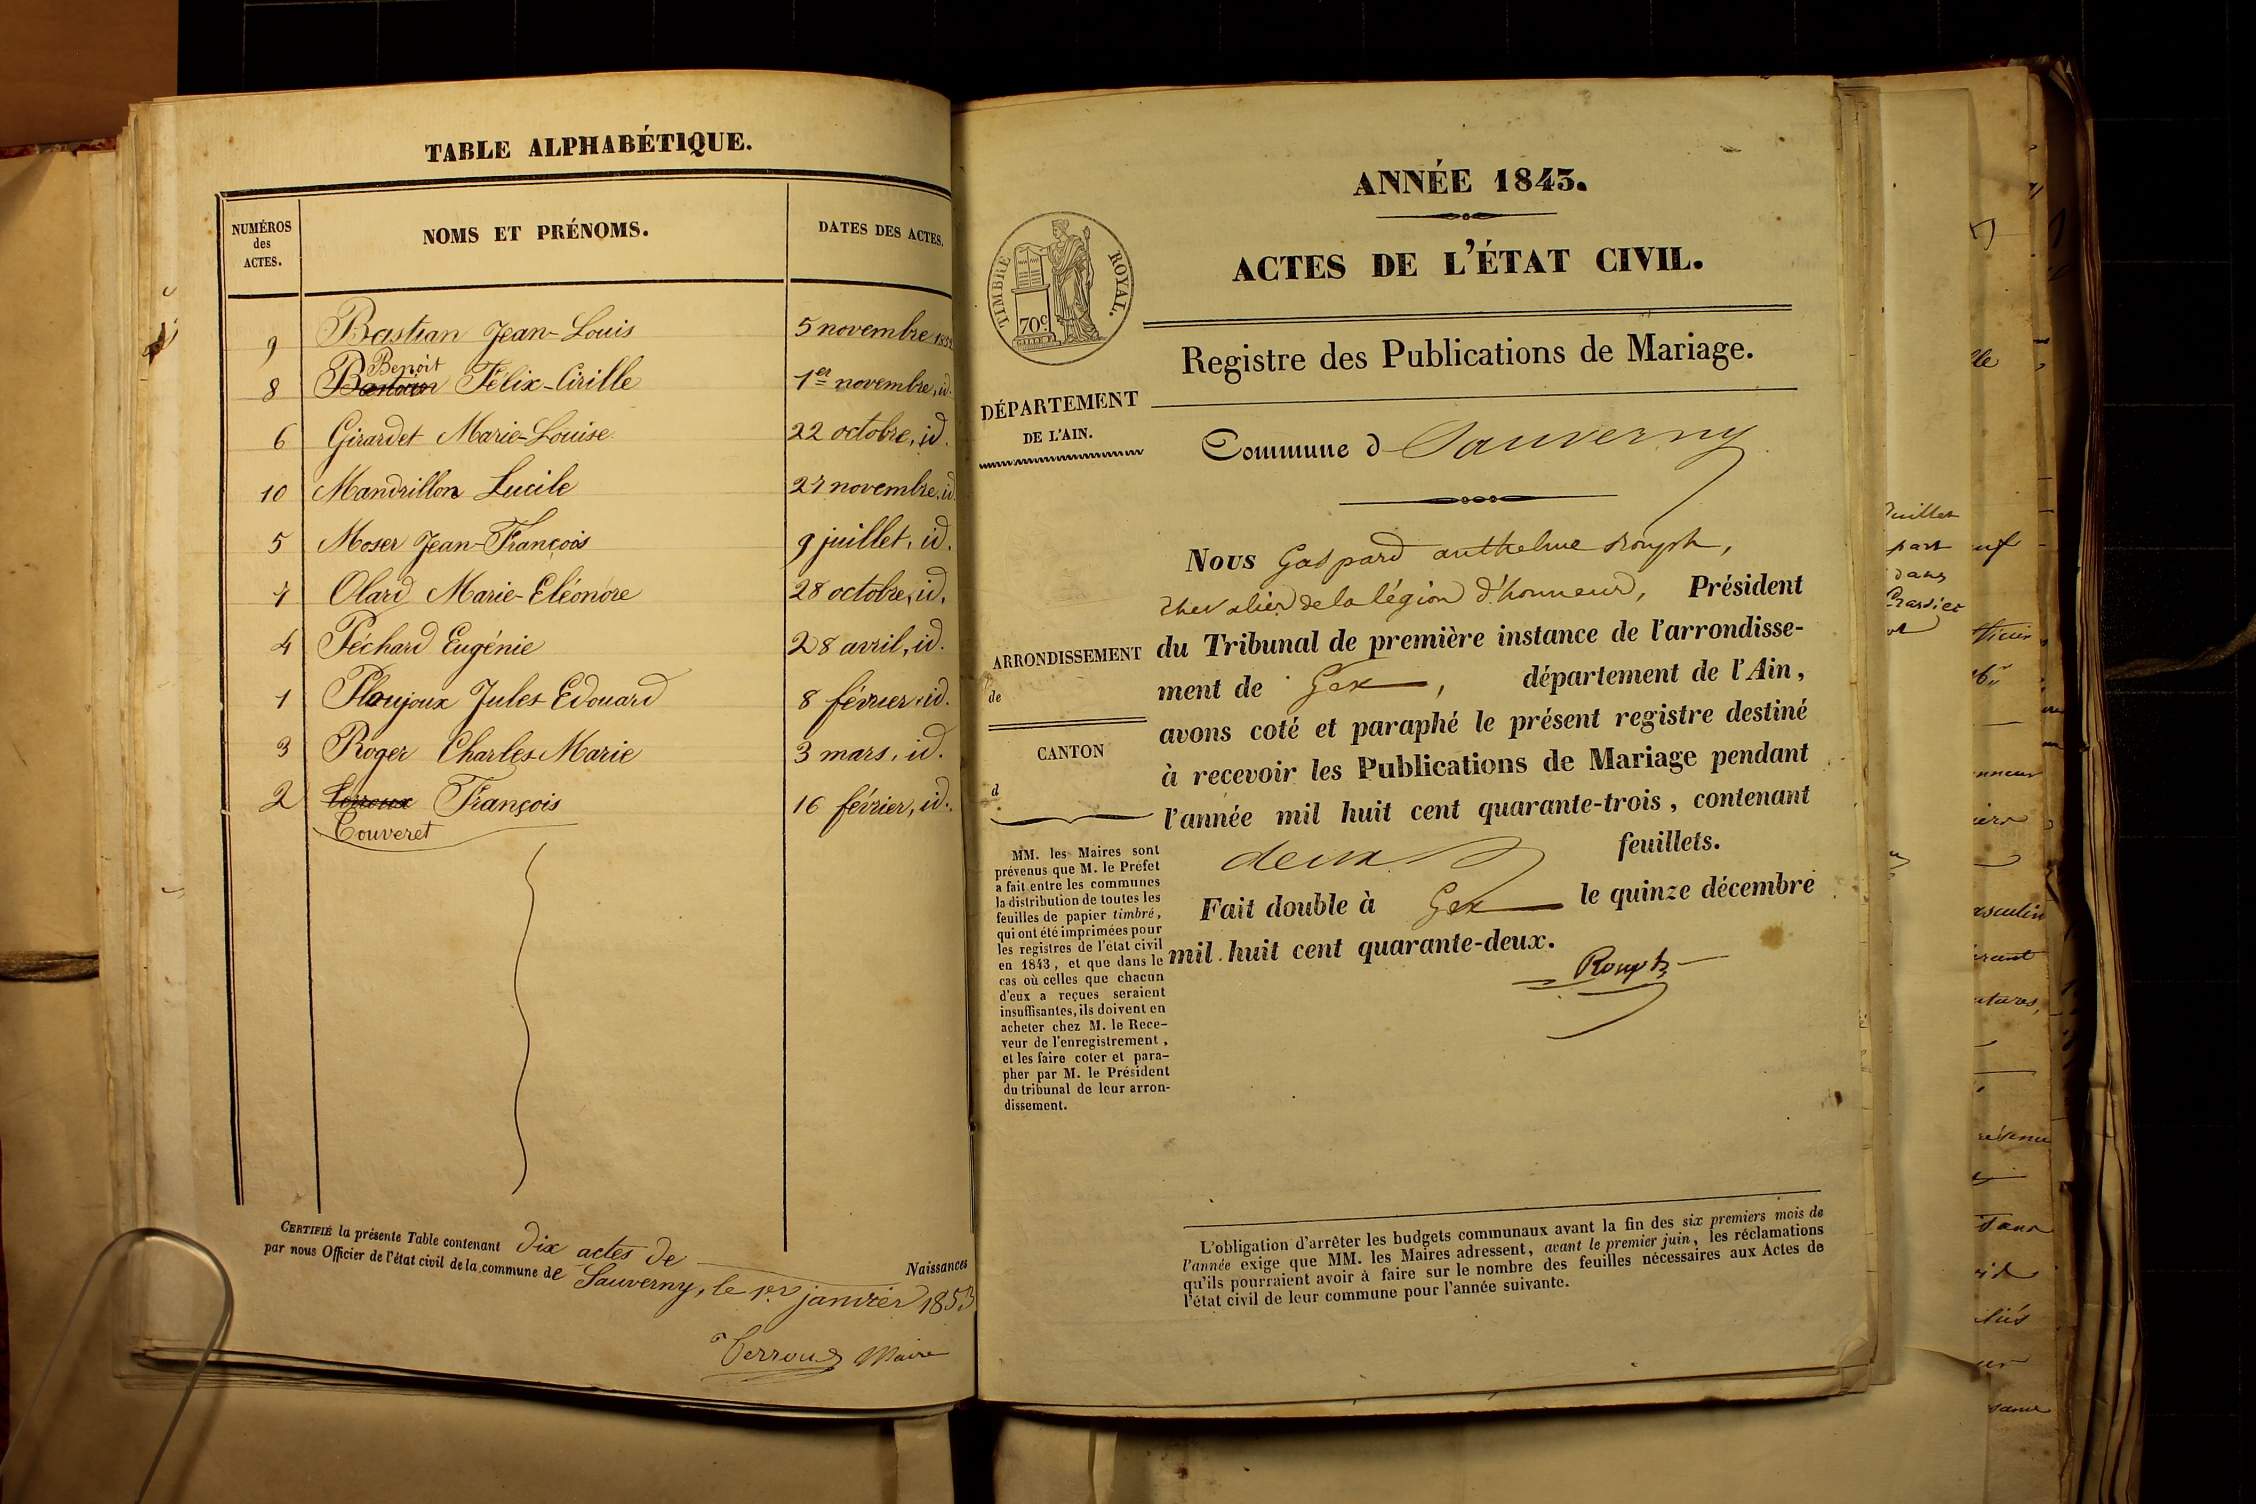 TABLE ALPHABÉTIQUE.
NUMÉROS des ACTES.
NOMS ET PRÉNOMS.
DATES DES ACTES.
9 Bastian Jean-Louis 5 novembre 1852
Benoit
8 Félix-Cirille 1er novembre, id.
6 Girardet Marie-Louise 22 octobre, id.
10 Mandrillon Lucile 27 novembre, id.
5 Moser Jean-François 9 juillet, id.
7 Olard Marie-Eléonore 28 octobre, id.
4 Péchard Eugénie 28 avril, id.
1 Ploujoux Jules Edouard 8 février, id.
3 Roger Charles-Marie 3 mars, id.
2 François 16 février, id.
Couveret
CERTIFIÉ la présente Table contenant dix actes de Naissances
par nous Officier de l'état civil de la commune de Sauverny, le 1er janvier 1853
Maire
ANNÉE 1843.
ACTES DE L'ÉTAT CIVIL.
TIMBRE ROYAL.
70c
Registre des Publications de Mariage.
DÉPARTEMENT
DE L'AIN.
Commune d Sauverny
Nous Gaspard anthelme Rouph,
chevalier de la légion d'honneur, Président
du Tribunal de première instance de l'arrondisse-
ment de Gex, département de l'Ain,
avons coté et paraphé le présent registre destiné
à recevoir les Publications de Mariage pendant
l'année mil huit cent quarante-trois, contenant
deux feuillets.
Fait double à Gex le quinze décembre
mil huit cent quarante-deux.
Rouph
ARRONDISSEMENT
de
CANTON
d
MM. les Maires sont
prévenus que M. le Préfet
a fait entre les communes
la distribution de toutes les
feuilles de papier timbré,
qui ont été imprimées pour
les registres de l'état civil
en 1843, et que dans le
cas où celles que chacun
d'eux a reçues seraient
insuffisantes, ils doivent en
acheter chez M. le Rece-
veur de l'enregistrement,
et les faire coter et para-
pher par M. le Président
du tribunal de leur arron-
dissement.
L'obligation d'arrêter les budgets communaux avant la fin des six premiers mois de
l'année exige que MM. les Maires adressent, avant le premier juin, les réclamations
qu'ils pourraient avoir à faire sur le nombre des feuilles nécessaires aux Actes de
l'état civil de leur commune pour l'année suivante.